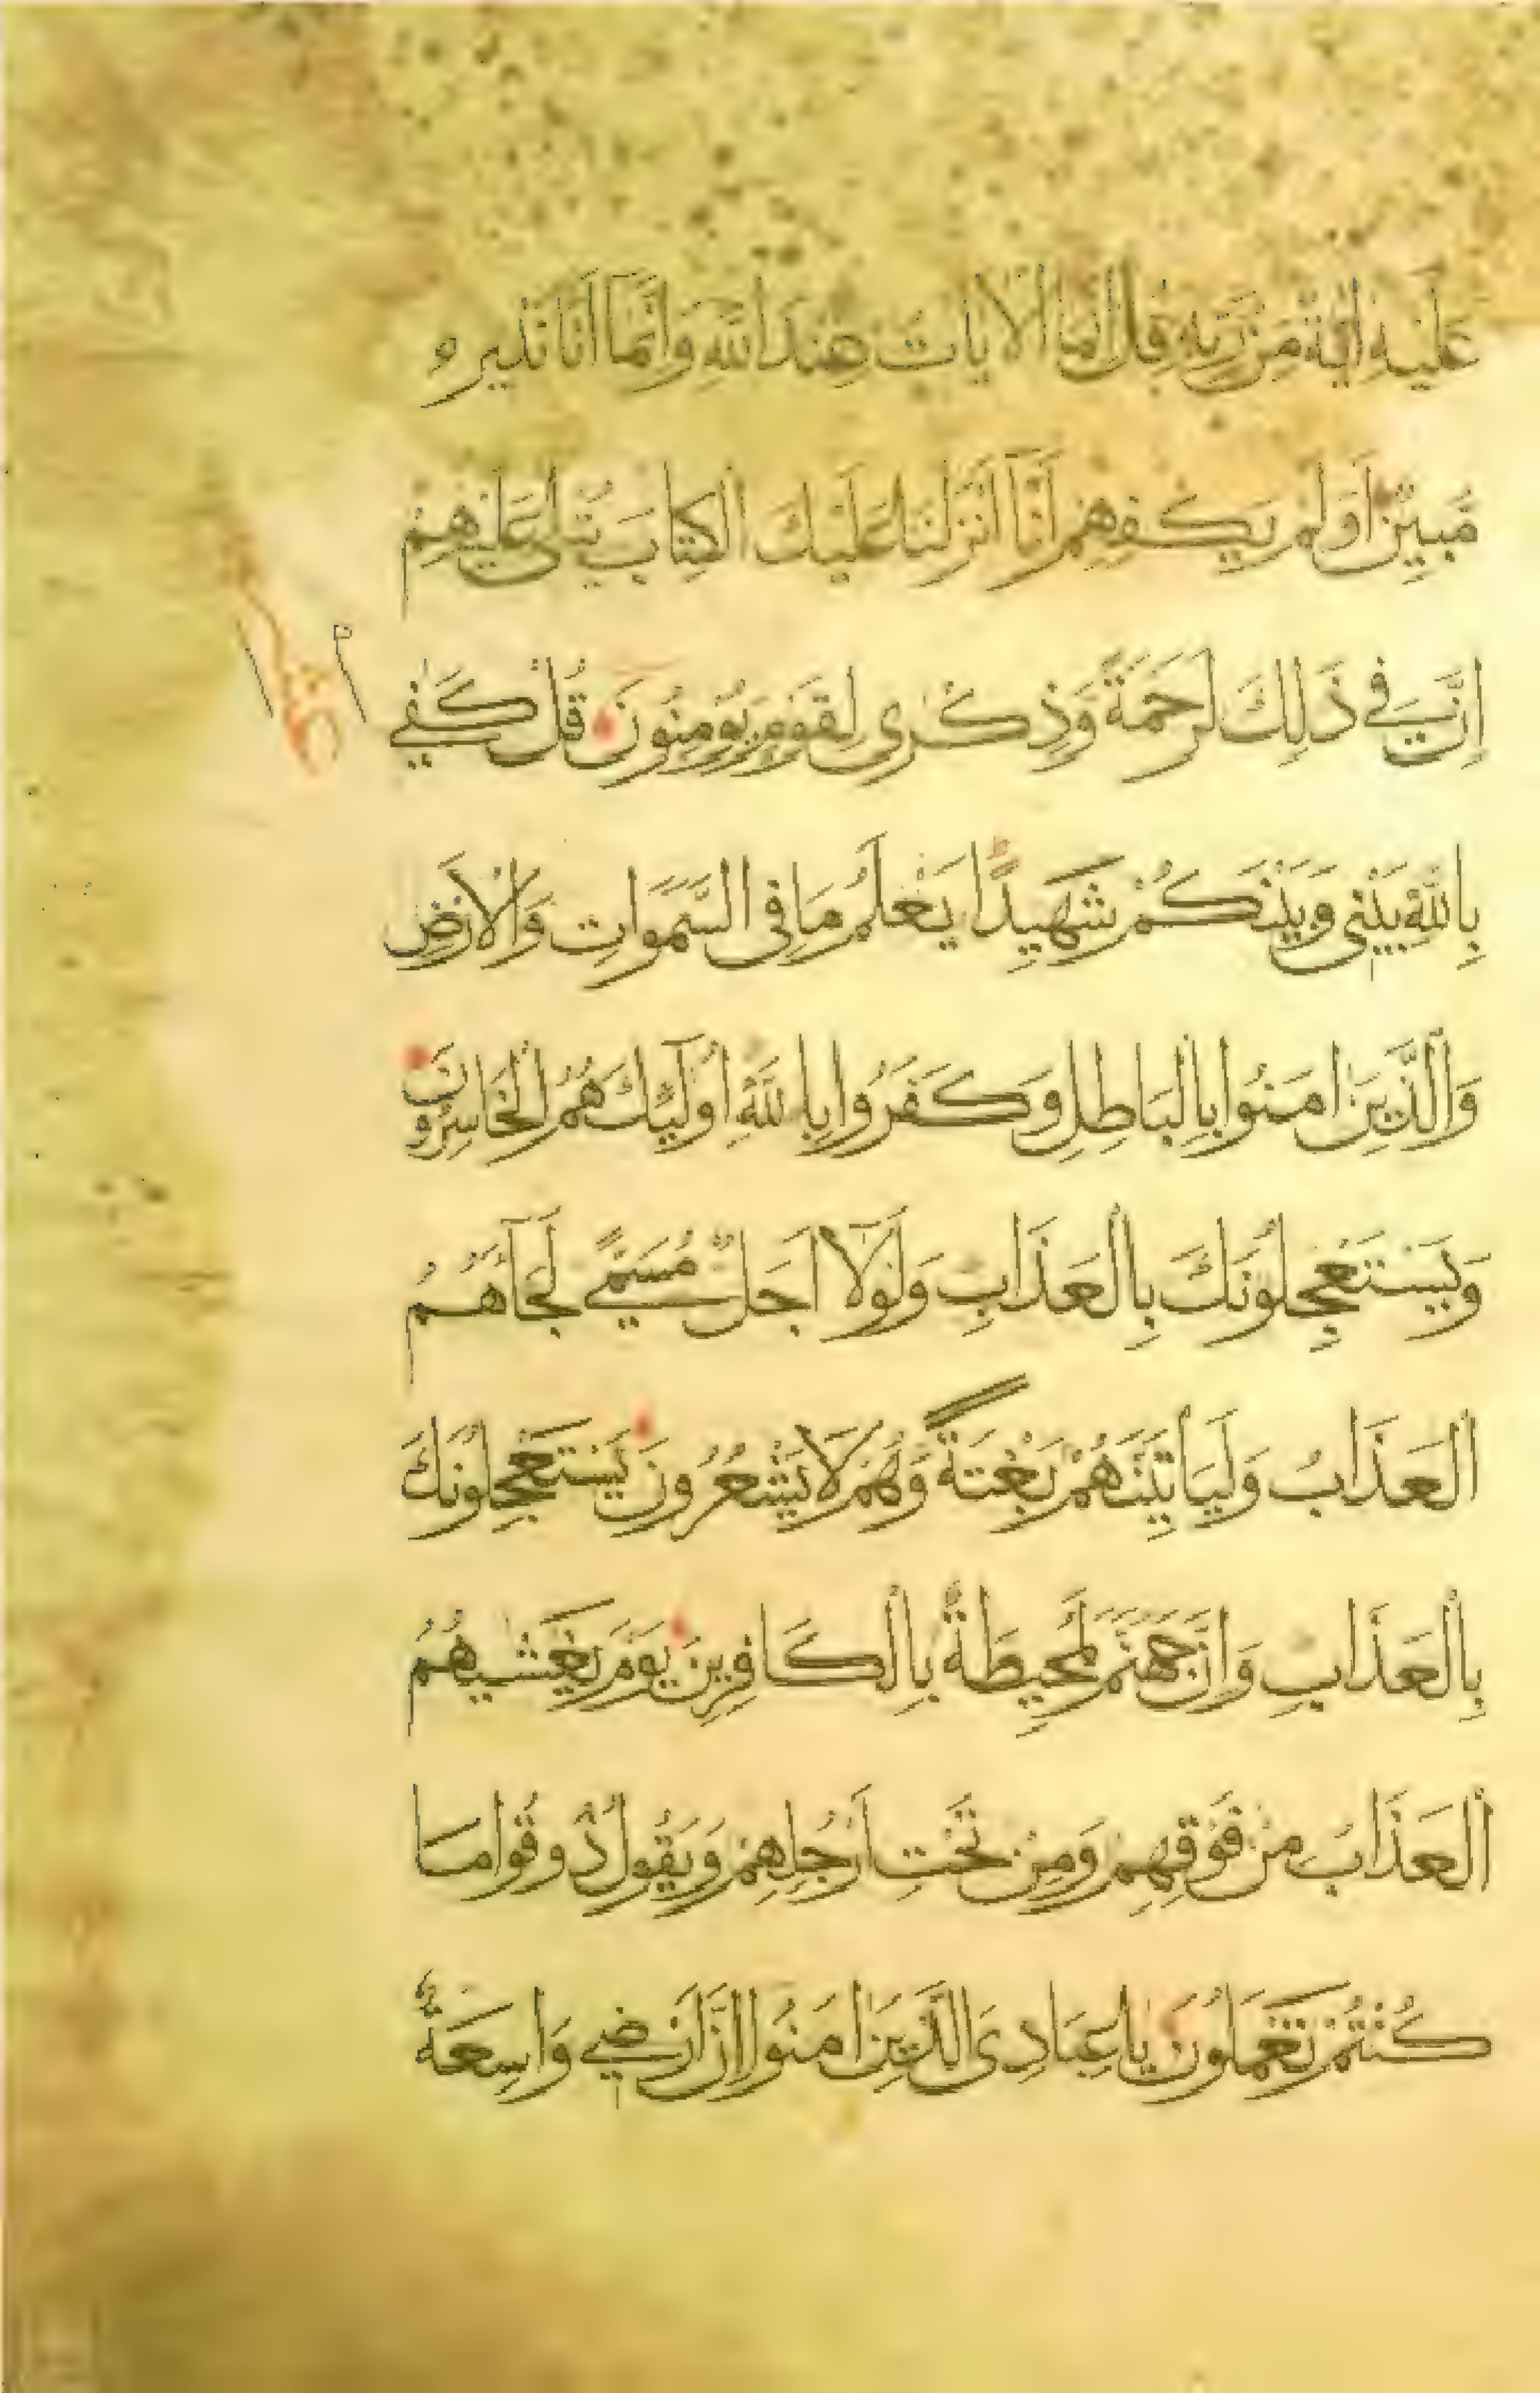 عَلَيْهِ اٰيَةٌ مِنْ رَبِّهِ قُلْ اِنَّمَا الْاٰيَاتُ عِنْدَ اللّٰهِ وَاِنَّمَا اَنَا نَذِيرٌ
مُبِينٌ اَوَلَمْ يَكْفِهِمْ اَنَّا اَنْزَلْنَا عَلَيْكَ الْكِتَابَ يُتْلٰى عَلَيْهِمْ
اِنَّ فِي ذٰلِكَ لَرَحْمَةً وَذِكْرٰى لِقَوْمٍ يُؤْمِنُونَ قُلْ كَفٰي
بِاللّٰهِ بَيْنِي وَبَيْنَكُمْ شَهِيدًا يَعْلَمُ مَا فِي السَّمٰوَاتِ وَالْاَرْضِ
وَالَّذِينَ اٰمَنُوا بِالْبَاطِلِ وَكَفَرُوا بِاللّٰهِ اُولٰٓئِكَ هُمُ الْخَاسِرُونَ
وَيَسْتَعْجِلُونَكَ بِالْعَذَابِ وَلَوْلَٓا اَجَلٌ مُسَمًّي لَجَٓاءَهُمُ
الْعَذَابُ وَلَيَاْتِيَنَّهُمْ بَغْتَةً وَهُمْ لَا يَشْعُرُونَ يَسْتَعْجِلُونَكَ
بِالْعَذَابِ وَاِنَّ جَهَنَّمَ لَمُحِيطَةٌ بِالْكَافِرِينَ يَوْمَ يَغْشٰيهُمُ
الْعَذَابُ مِنْ فَوْقِهِمْ وَمِنْ تَحْتِ اَرْجُلِهِمْ وَيَقُولُ ذُوقُوا مَا
كُنْتُمْ تَعْمَلُونَ يَا عِبَادِيَ الَّذِينَ اٰمَنُوا اِنَّ اَرْضِي وَاسِعَةٌ